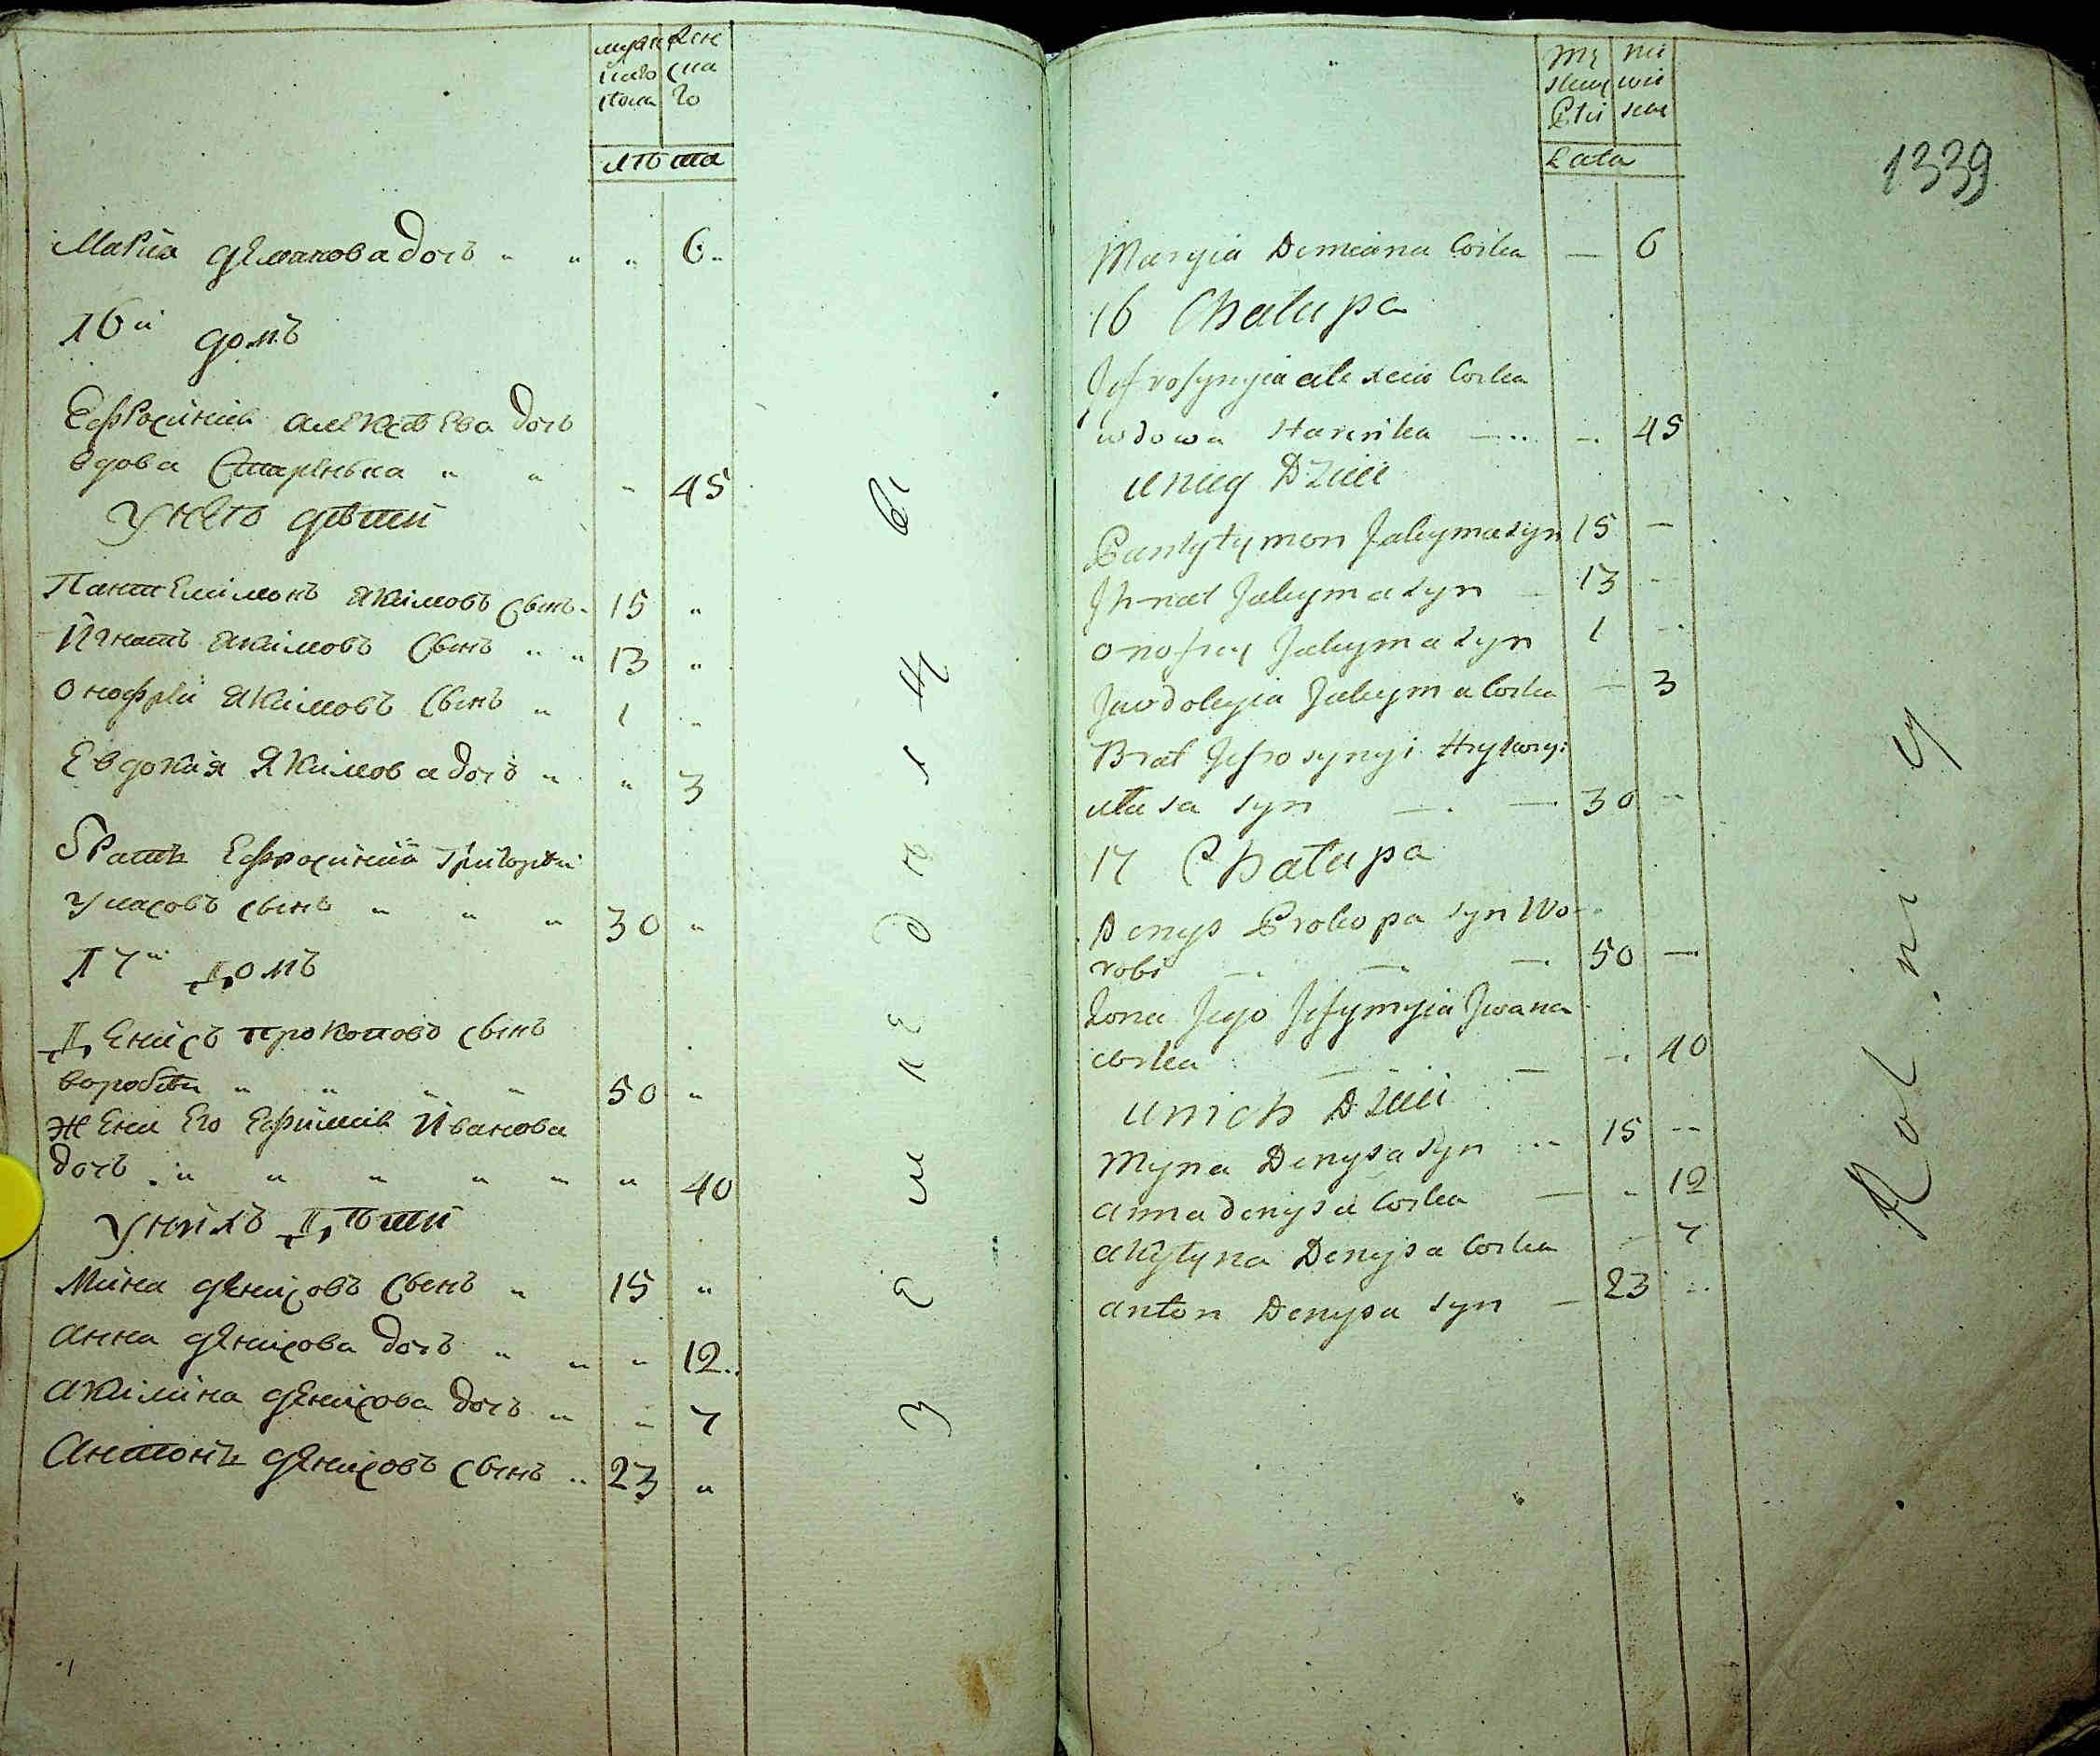 муже женс
ска го
пола
лѣта
Мария демянова дочъ " " " 6
16й домъ
Ефросиния алексѣева дочъ
вдова Старинька " " " 45
У него дѣти
Пантелимонъ якимовъ сынъ 15 "
Игнатъ якимовъ сынъ " " 13 "
Онофрий якимовъ сынъ " 1 "
Евдокия Якимова дочъ " " 3
Братъ Ефросинии Григорий
Уласовъ сынъ " " " 30 "
17й домъ
Денисъ прокоповъ сынъ
воробѣй " " " " 50 "
жена Его Ефимия Иванова
дочъ " " " " " " 40
У нихъ дѣти
Мина денисовъ сынъ " 15 "
Анна денисова дочъ " " " 12
Акилина денисова дочъ " " 7
Антонъ денисовъ сынъ 23 "
Земледелцы
1339
Mę nie
skiey wie
Płci scie
Lata
Maryia Demiana Corka — 6
16 Chalupa
Jefrosynyia alexeia Corka
wdowa Starinka — 45
u nieg Dzieci
Pantylymon Jakyma syn 15 —
Ihnat Jakyma syn 13 -
onofrey Jakyma syn 1 -
Jawdokyia Jakyma Corka — 3
Brat Jefrosynyi Hryhoryi
Ułasa syn — — 30 -
17 Chałupa
Denys Prokopa syn Wo-
robi — — — 50 —
Zona Jego Jefymyia Jwana
corka — — 40
u nich Dzieci
Myna Denysa syn 15 --
anna denysa Corka — 12
akylyna Denysa Corka - 7
anton Denysa syn — 23
Rolnicy